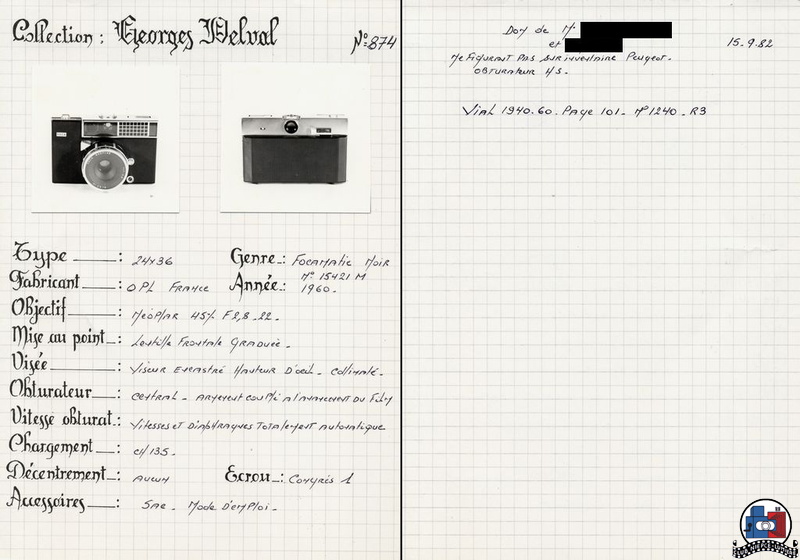 Collection : Georges Delval
N° 874
Type : 24x36
Genre : Focamatic Noir
N° 15421 M
Fabricant : OPL France
Année : 1960.
Objectif : Neoplar 45% F 2,8 - 22.
Mise au point : Lentille Frontale Graduée.
Visée : Viseur Encastré Hauteur D'oeil - Collimaté.
Obturateur : Central - Armement couplé a l'avancement du Film
Vitesse obturat. : Vitesses et Diaphragmes Totalement Automatique
Chargement : CH 135.
Décentrement : Aucun
Ecrou : Congrès 1
Accessoires : Sac - Mode D'emploi -
Don de M.
et
15.9.82
Ne Figurant Pas sur inventaire Peugeot.
Obturateur HS.
Vial 1940.60. Page 101. N° 1240. R3